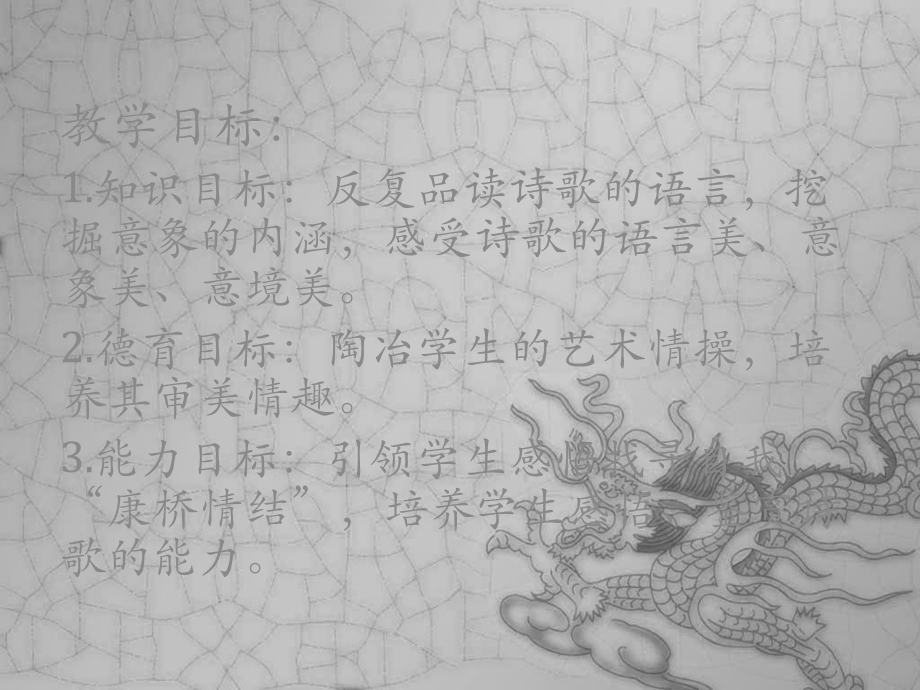 教学目标：
1.知识目标：反复品读诗歌的语言，挖
掘意象的内涵，感受诗歌的语言美、意
象美、意境美。
2.德育目标：陶冶学生的艺术情操，培
养其审美情趣。
3.能力目标：引领学生感悟找寻 我
“康桥情结”，培养学生感悟
歌的能力。